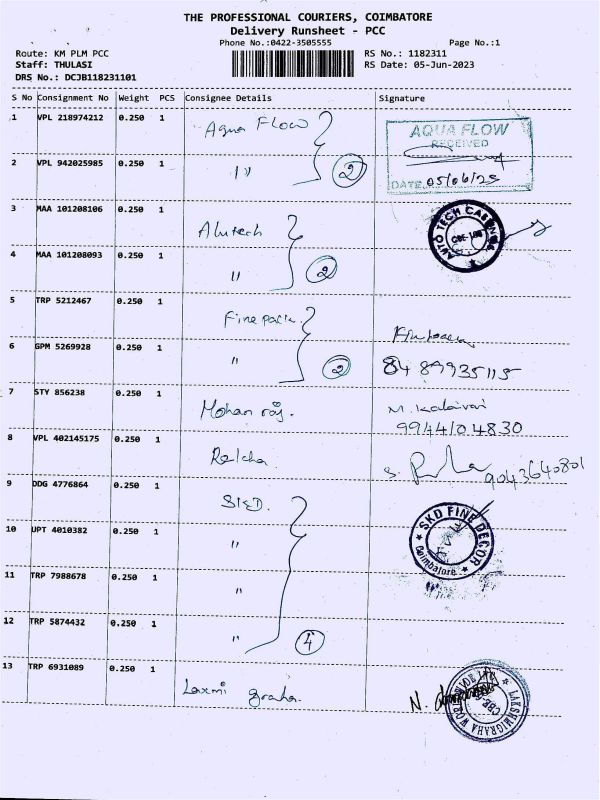 THE PROFESSIONAL COURIERS, COIMBATORE
Delivery Runsheet - PCC
Phone No.:0422-3505555 Page No.:1
Route: KM PLM PCC RS No.: 1182311
Staff: THULASI RS Date: 05-Jun-2023
DRS No.: DCJB118231101
S No Consignment No Weight PCS Consignee Details Signature
1 VPL 218974212 0.250 1 Aqua Flow
AQUA FLOW
RECEIVED
2 VPL 942025985 0.250 1 " 2
DATE 05/06/25
3 MAA 101208106 0.250 1 Alutech
AUTO TECH
4 MAA 101208093 0.250 1 " 2
5 TRP 5212467 0.250 1 Finepack
6 GPM 5269928 0.250 1 " 2 8489935115
7 STY 856238 0.250 1 Mohan raj. M. Kalaivani
9944104830
8 VPL 402145175 0.250 1 Rekha 9043640801
9 DDG 4776864 0.250 1 SKD.
SKD FINE DECOR
Coimbatore
10 UPT 4010382 0.250 1 "
11 TRP 7988678 0.250 1 "
12 TRP 5874432 0.250 1 " 4
13 TRP 6931089 0.250 1 Laxmi graha. N.
LAKSHMIGRAHA WORLDWIDE
CBE